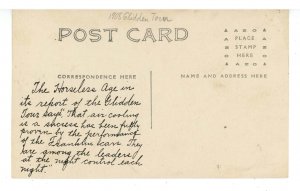 1908 Glidden Tour
POST CARD
PLACE
STAMP
HERE
CORRESPONDENCE HERE
NAME AND ADDRESS HERE
The Horseless Age in
its report of the Glidden
Tour says "That air cooling
is a success has been fully
proven by the performance
of the Franklin cars. They
are among the leaders
at the night control each
night."